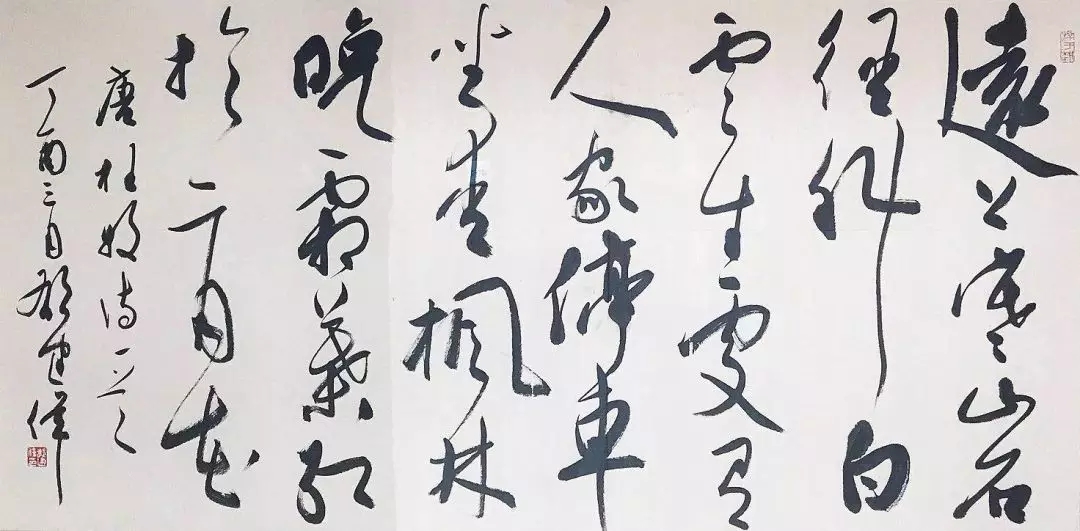 遠上寒山石
徑斜白
雲生處有
人家停車
坐愛楓林
晚霜葉紅
於二月花
唐杜牧詩一首
丁酉三月建偉